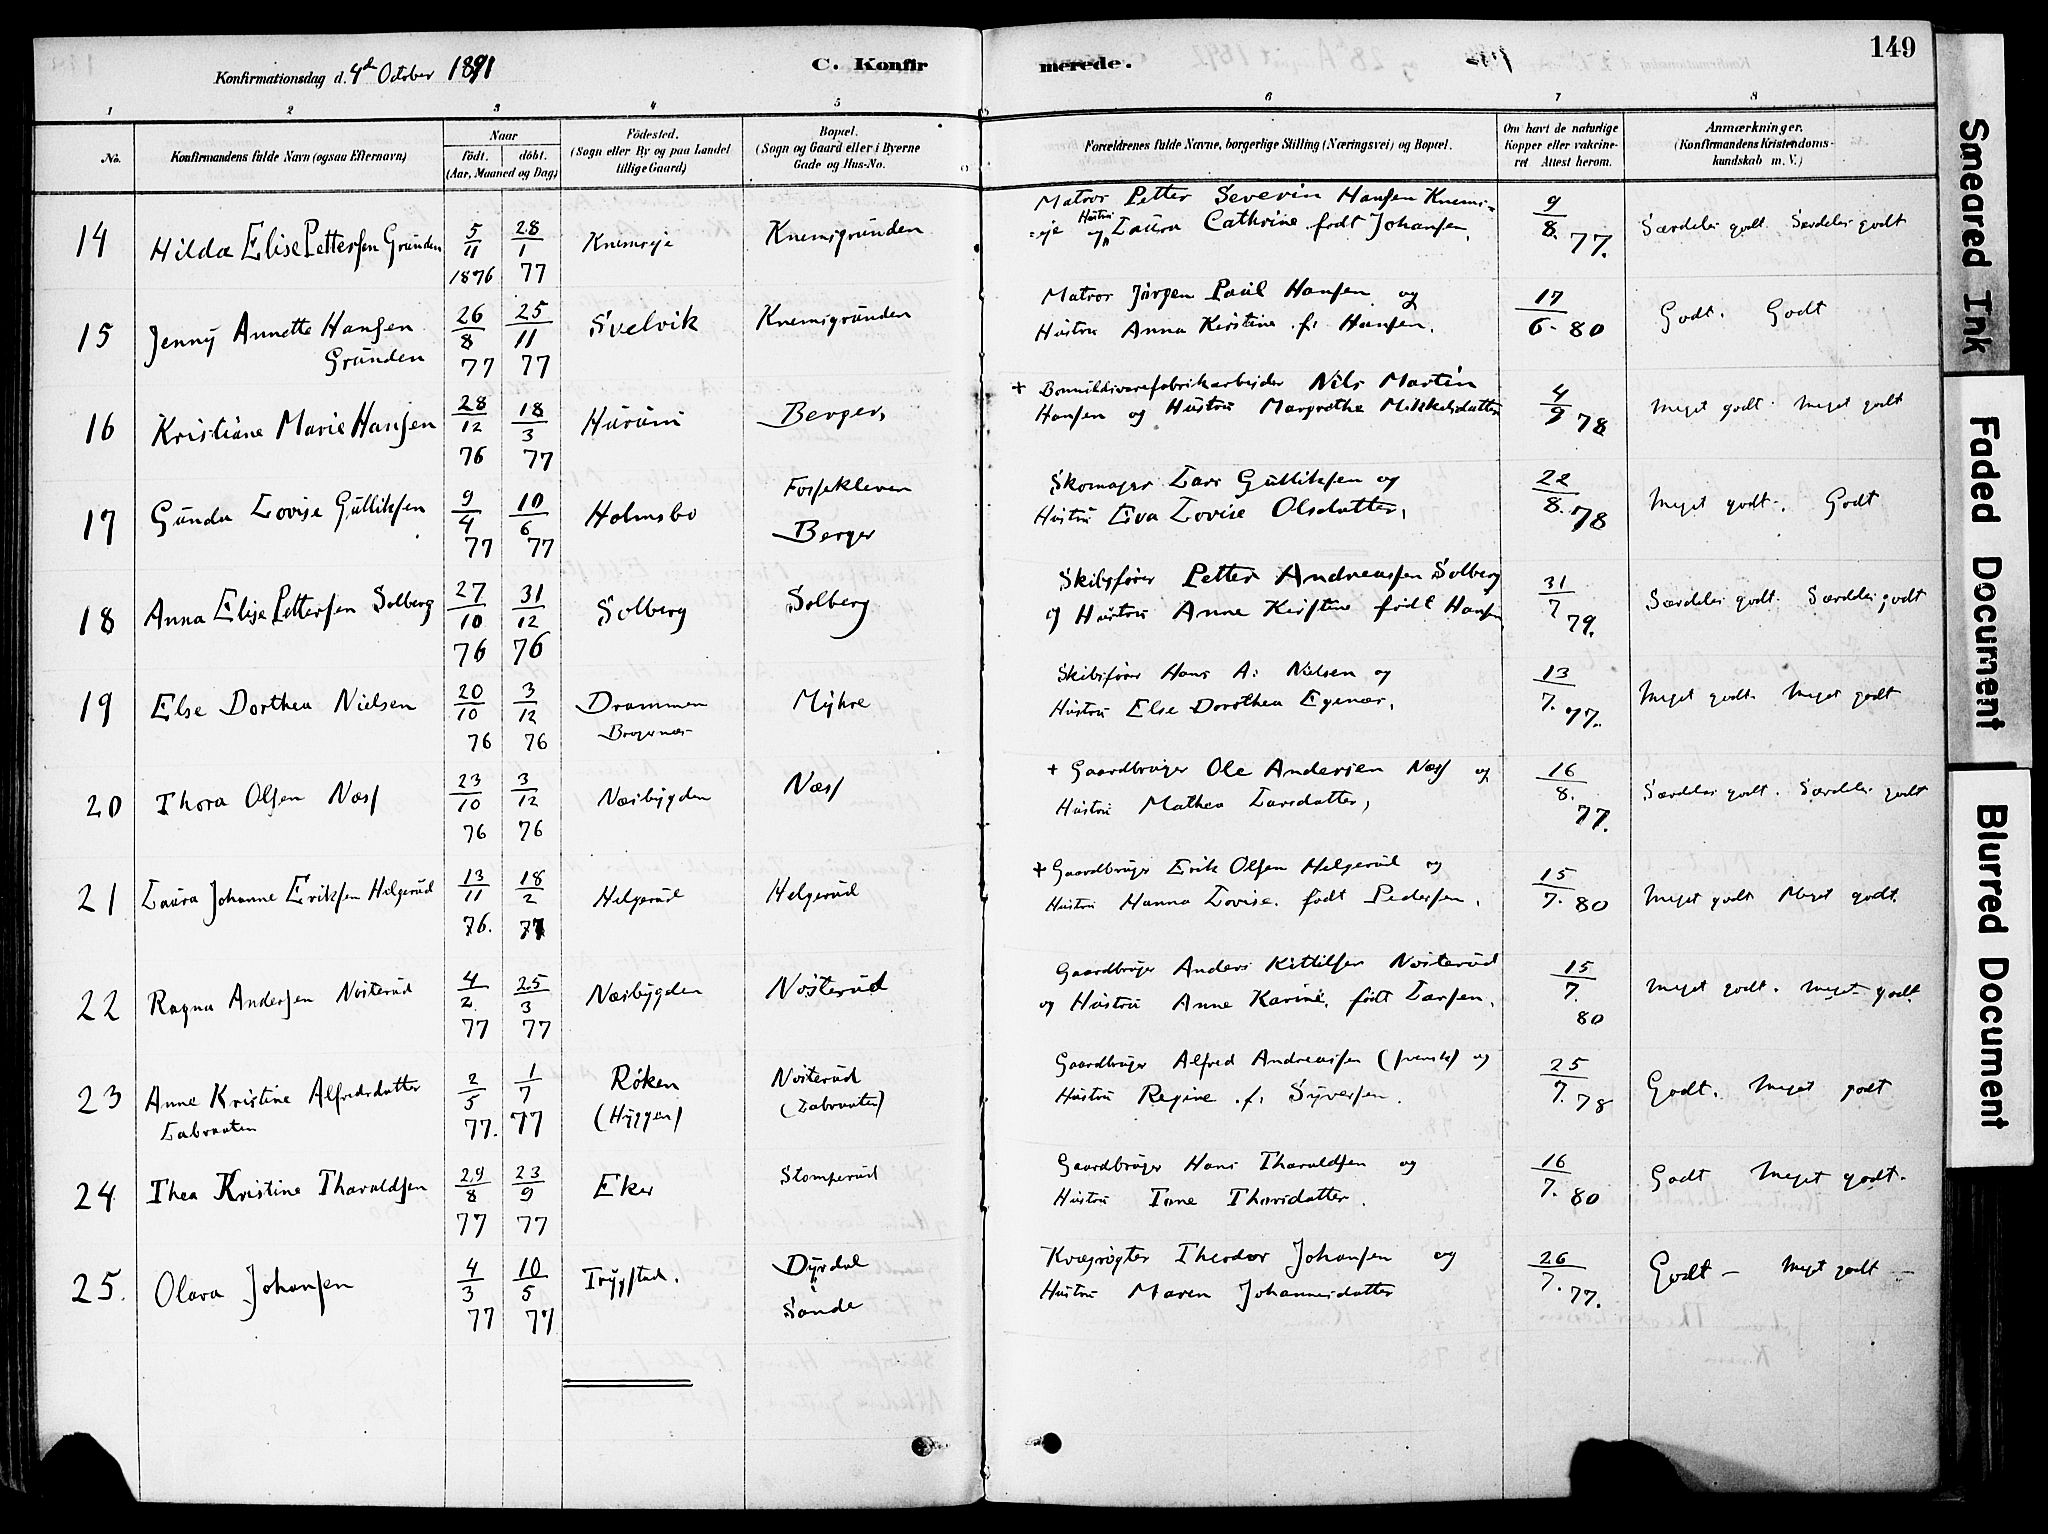 Konfirmationsdag d. 4de October 1891 C. Konfirmerede. 149
1 2 3 4 5 6 7 8
No. Konfirmandens fulde Navn (ogsaa Efternavn) Naar födt. döbt. (Aar, Maaned og Dag) Födested. (Sogn eller By og paa Landet tillige Gaard) Bopæl. (Sogn og Gaard eller i Byerne Gade og Hus-No. Forældrenes fulde Navne, borgerlige Stilling (Næringsvei) og Bopæl. Om havt de naturlige Kopper eller vakcineret Attest herom. Anmærkninger. (Konfirmandens Kristendomskundskab m. V.)
14 Hilda Elise Pettersen Grunden 5/11 1876 28/1 77 Knemseje Knemsgrunden Matros Petter Severin Hansen Knems=
=eje og Hustru Laura Cathrine født Johansen. 9/8. 77. Særdeles godt. Særdeles godt
15 Jenny Annette Hansen
Grunden 26/8 77 25/11 77 Svelvik Knemsgrunden Matros Jørgen Paul Hansen og
Hustru Anna Kirstine f. Hansen. 17/6. 80 Godt. Godt
16 Kristiane Marie Hansen 28/12 76 18/3 77 Hurum Berger, + Bomuldsvarefabrikarbejder Nils Martin
Hansen og Hustru Margrethe Mikkelsdatter 4/9 78 Meget godt. Meget godt
17 Gunda Lovise Gulliksen 9/4 77 10/6 77 Holmsbo Fossekleven
Berger Skomager Lars Gulliksen og
Hustru Eva Lovise Olsdatter, 22/8. 78 Meget godt. Godt
18 Anna Elise Pettersen Solberg 27/10 76 31/12 76 Solberg Solberg Skibsfører Petter Andreassen Solberg
og Hustru Anne Kirstine født Hansen 31/7 79. Særdeles godt. Særdeles godt
19 Else Dorthea Nielsen 20/10 76 3/12 76 Drammen
Bragernæs Myhre Skibsfører Hans A: Nielsen og
Hustru Else Dorothea Egenæs, 13/7. 77. Meget godt. Meget godt
20 Thora Olsen Næss 23/10 76 3/12 76 Næsbygden Næss + Gaardbruger Ole Andersen Næss og
Hustru Mathea Larsdatter, 16/8. 77. Særdeles godt. Særdeles godt
21 Laura Johanne Eriksen Helgerud 13/11 76. 18/2 77 Helgerud Helgerud + Gaardbruger Erik Olsen Helgerud og
Hustru Hanna Lovise. født Pedersen. 15/7. 80 Meget godt Meget godt.
22 Ragna Andersen Nosterud 4/2 77 25/3 77 Næsbygden Nosterud Gaardbruger Anders Kittilsen Nosterud
og Hustru Anne Karine, født Larsen. 15/7. 80 Meget godt. Meget godt
23 Anne Kristine Alfredsdatter
Labraaten 2/5 77. 1/7 77 Røken
(Hyggen) Nosterud
(Labraaten) Gaardbruger Alfred Andreassen (svensk) og
Hustru Regine f. Syversen. 25/7. 78 Godt. Meget godt
24 Thea Kristine Tharaldsen 29/8 77 23/9 77 Eker Stomperud Gaardbruger Hans Tharaldsen og
Hustru Tone Thorsdatter. 16/7. 80 Godt Meget godt.
25. Olava Johansen 4/3 77 10/5 77 Trygstad. Dyrdal
i
Sande Kvægrøgter Theodor Johansen og
Hustru Maren Johannesdatter 26/7. 77. Godt – Meget godt –
Smeared Ink
Faded Document
Blurred Document